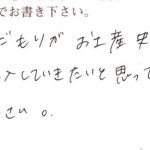 でお書き下さい。
どもりが お土産
入していきたいと思って
さい。